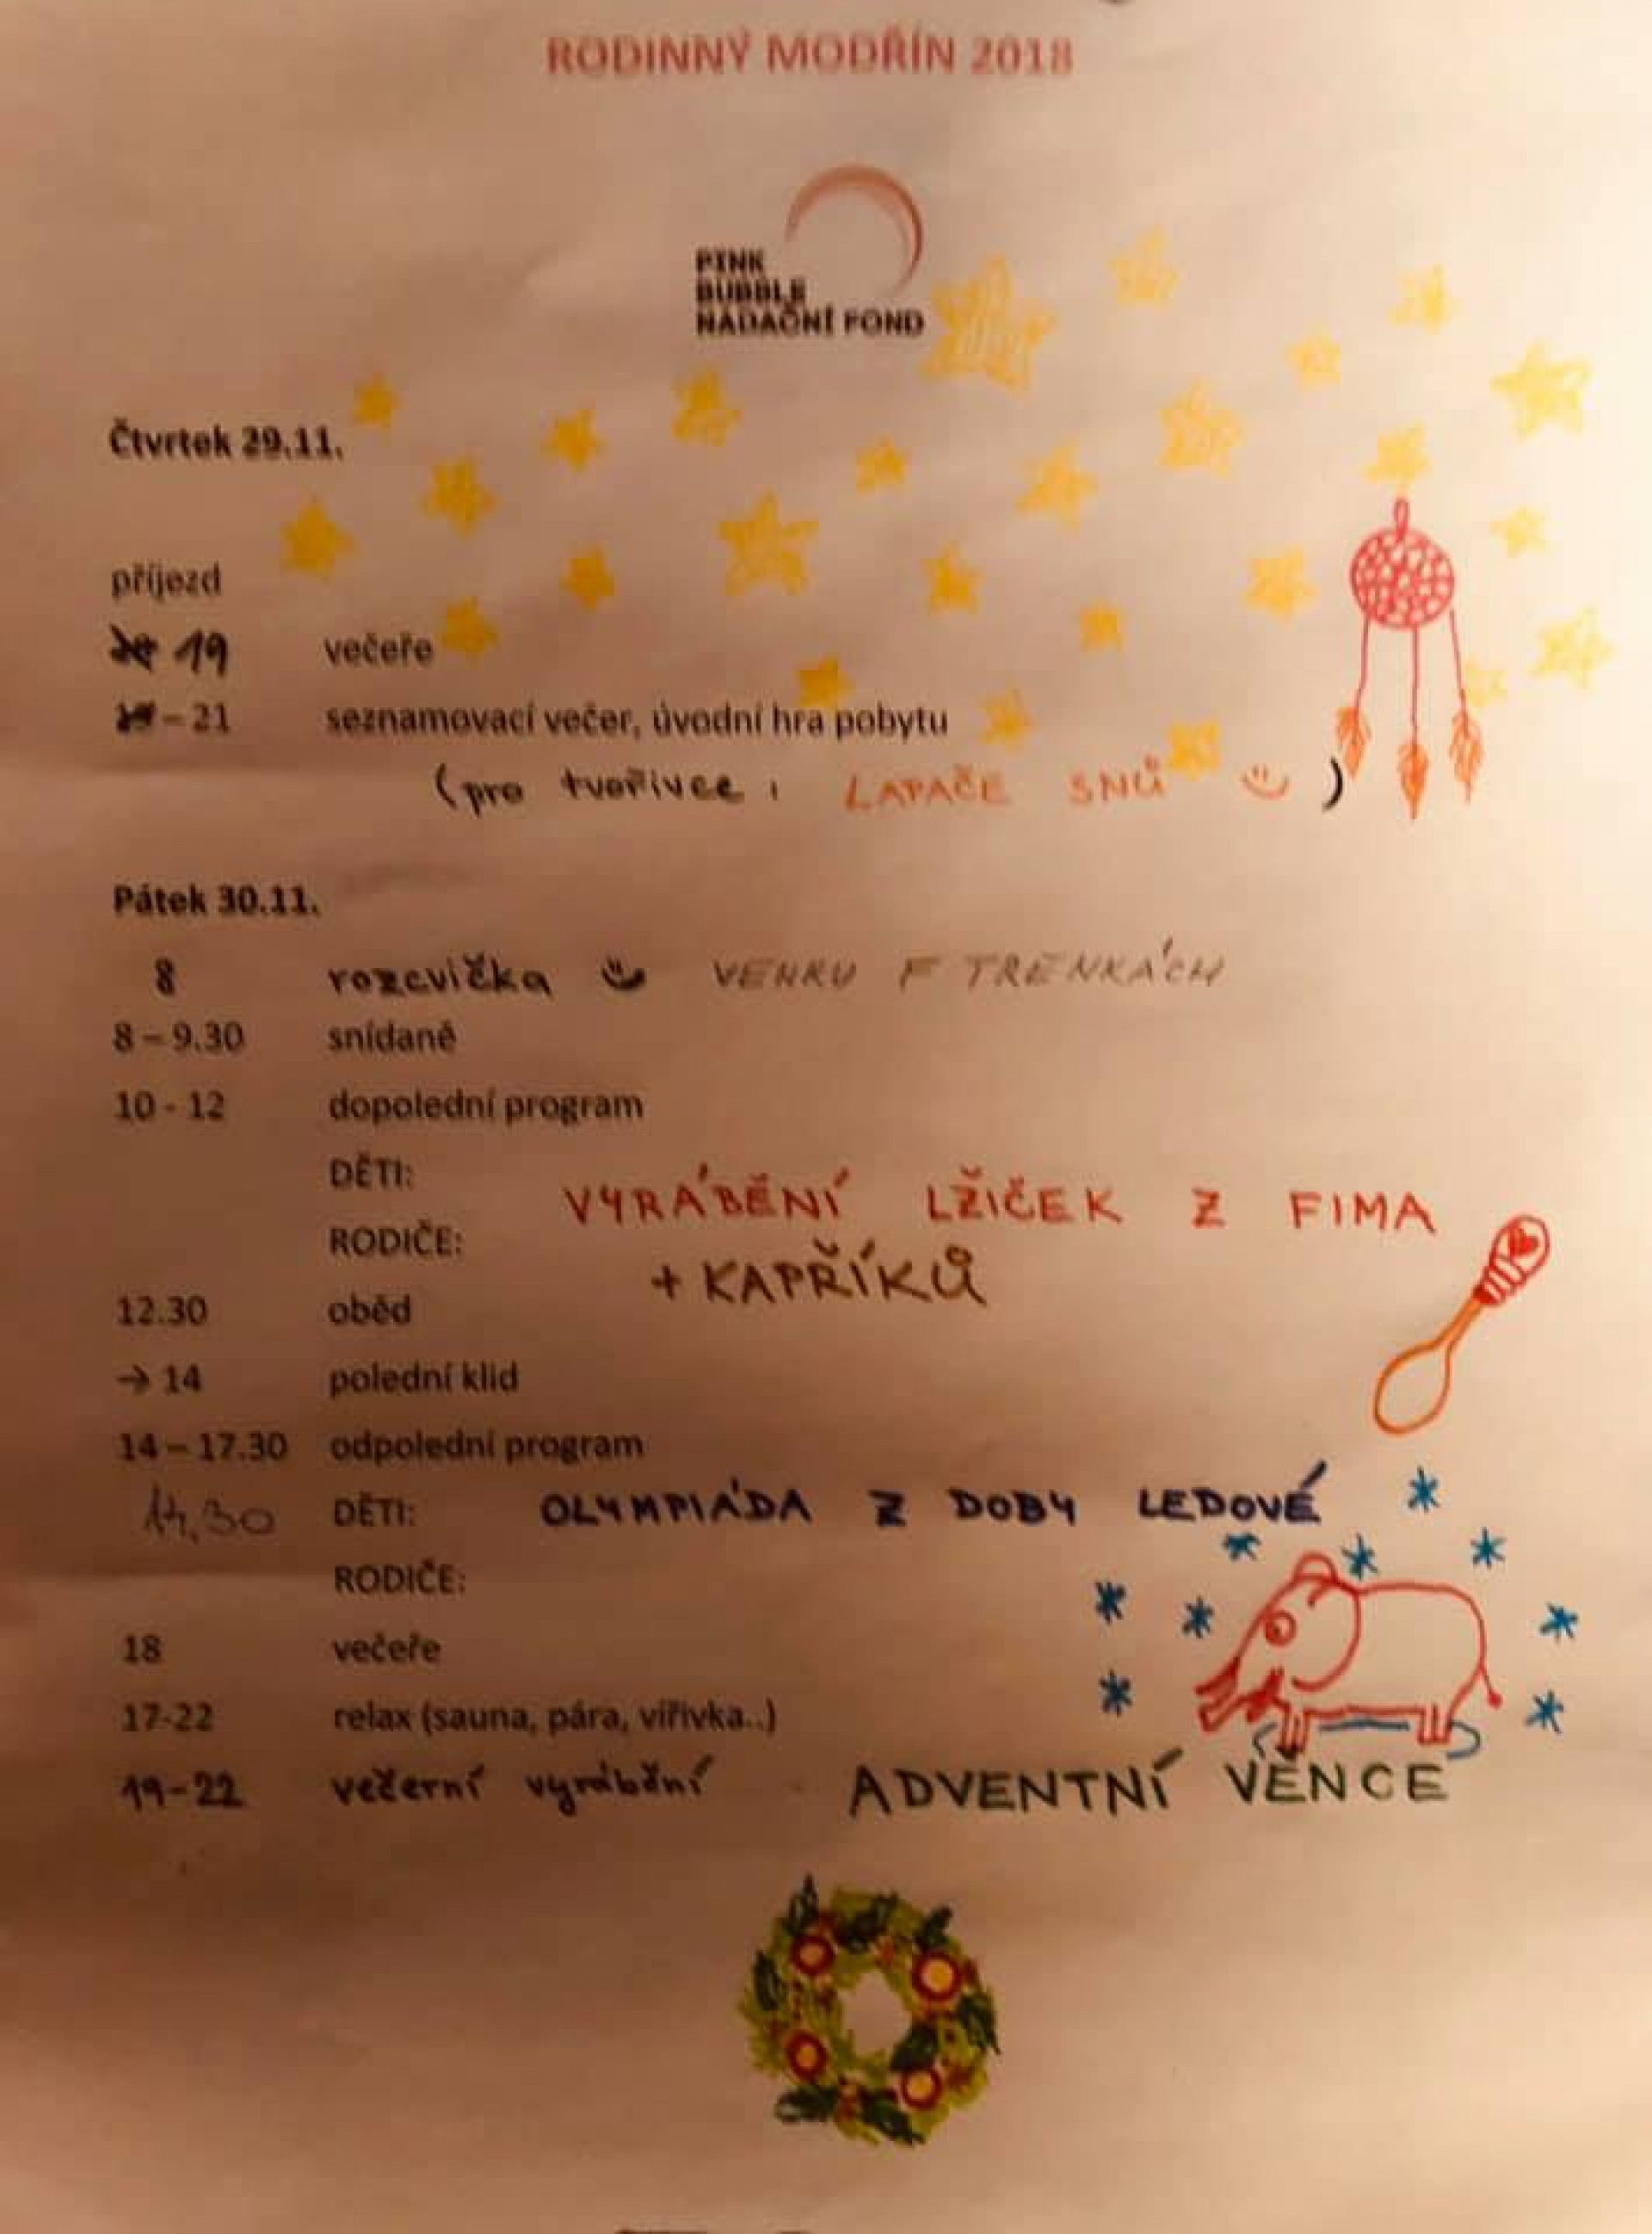 RODINNÝ MODŘÍN 2018
PINK
BUBBLE
NADAČNÍ FOND
Čtvrtek 29.11.
příjezd
19 večeře
– 21 seznamovací večer, úvodní hra pobytu
(pro tvořivce: LAPAČE SNŮ )
Pátek 30.11.
8 rozcvička VENKU F TRENKÁCH
8 – 9.30 snídaně
10 - 12 dopolední program
DĚTI:
VYRÁBĚNÍ LŽIČEK Z FIMA
RODIČE:
+ KAPŘÍKŮ
12.30 oběd
→ 14 polední klid
14 – 17.30 odpolední program
14,30 DĚTI: OLYMPIÁDA Z DOBY LEDOVÉ
RODIČE:
18 večeře
17-22 relax (sauna, pára, vířivka..)
19-22 večerní vyrábění - ADVENTNÍ VĚNCE